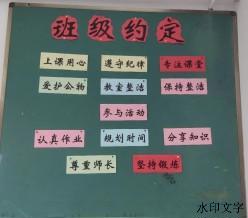 班级约定
上课用心 遵守纪律 专注课堂
爱护公物 教室整洁 保持整洁
参与活动
认真作业 规划时间 分享知识
尊重师长 坚持锻炼
水印文字